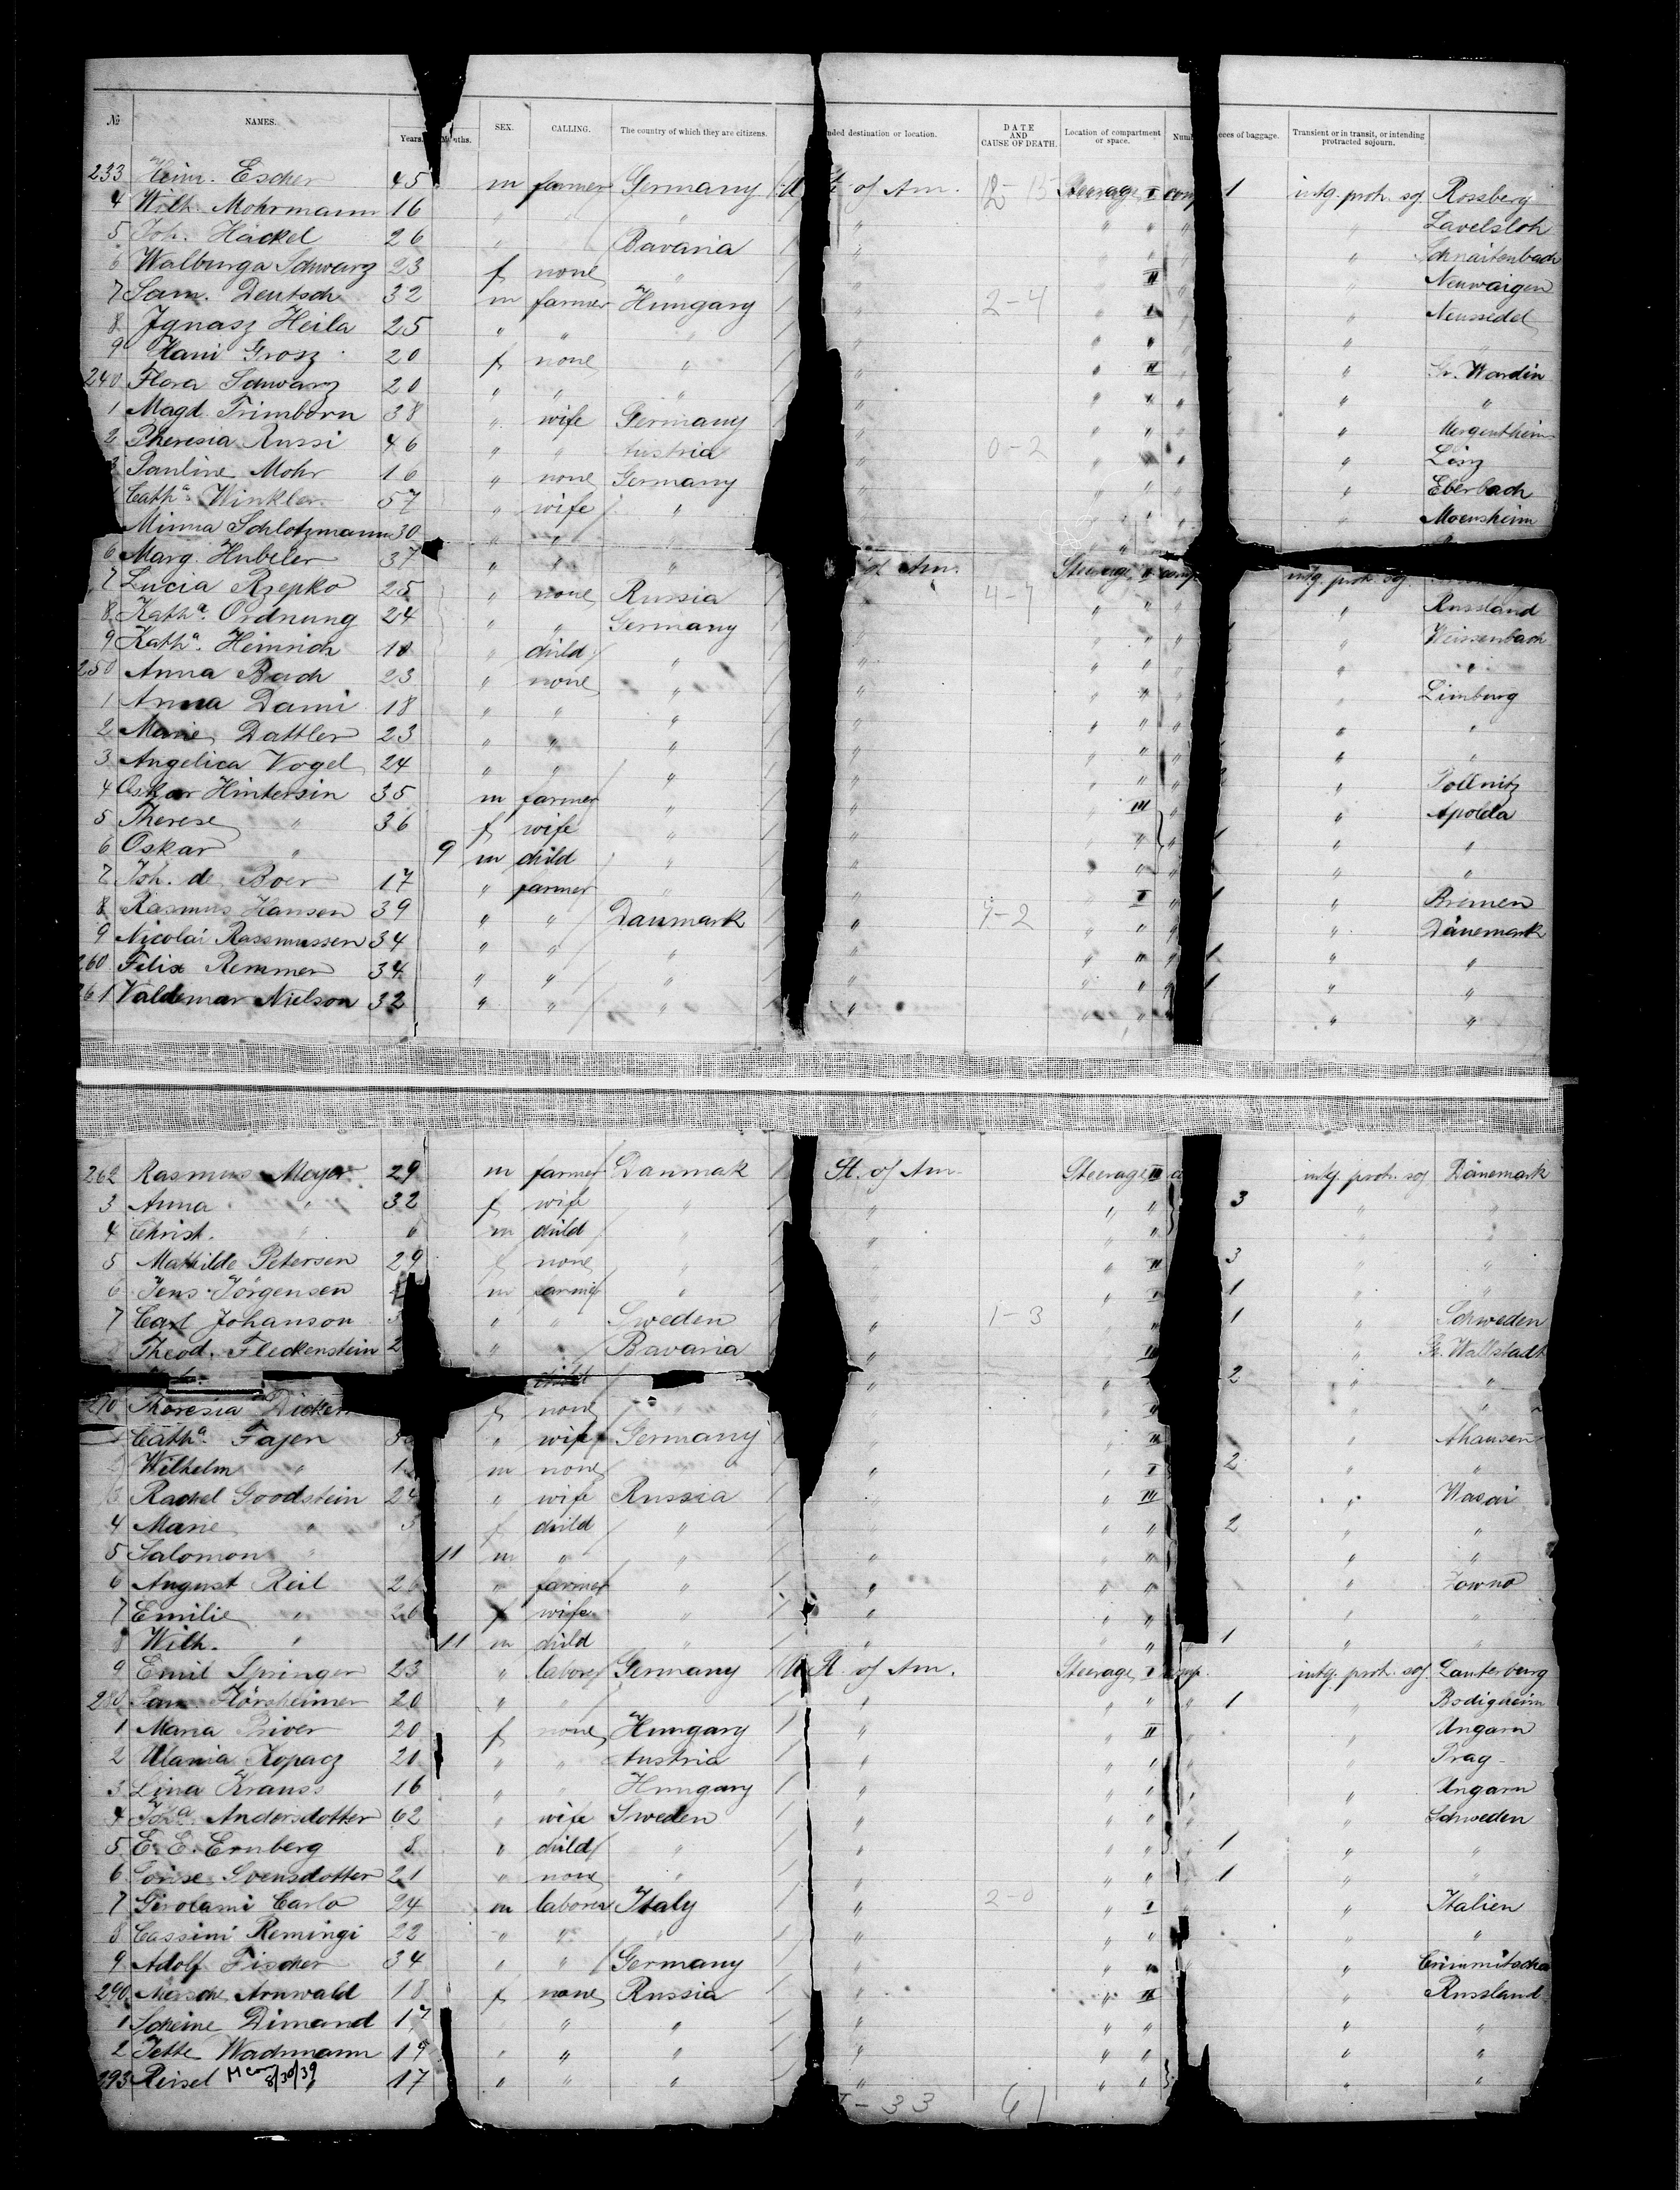 № NAMES. Years. Months. SEX. CALLING. The country of which they are citizens. nded destination or location. DATE AND CAUSE OF DEATH. Location of compartment or space. Num eces of baggage. Transient or in transit, or intending protracted sojourn.
233 Heinr. Escher 45 m farmer Germany U St. of Am. 12-15 Steerage I comp 1 intg. protr. soj. Rossberg
4 Wilh. Mohrmann 16 " " " " " " " Lavelsloh
5 Joh. Häckel 26 " Bavaria " " " " Schnaitenbach
6 Walburga Schwarz 23 f none " " " II " Neuwaigen
7 Sam. Deutsch 32 m farmer Hungary " 2-4 " I " Neusiedel
8 Ignasz Heila 25 " " " " " " " "
9 Hani Grosz 20 f none " " " II " Gr. Wardin
240 Flora Schwarz 20 " " " " " " " "
1 Magd. Trimborn 38 " wife Germany " " " " Mergentheim
2 Theresia Russi 46 " " Austria " 0-2 " " " Linz
3 Pauline Mohr 16 " none Germany " " " " Eberbach
Catha. Winkler 57 " wife " " " " " Moensheim
Minna Schlotzmann 30 " " "
6 Marg. Hubeler 37 " " " of Am. Steerage II comp intg. protr. soj.
7 Lucia Rzepko 25 " none Russia " 4-7 " " " Russland
8 Katha. Ordnung 24 " " Germany " " " " Weissenbach
9 Katha. Heinrich 10 " child " " " " " "
250 Anna Bach 23 " none " " " " " Limburg
1 Anna Dami 18 " " " " " " " "
2 Marie Dattler 23 " " " " " " " "
3 Angelica Vogel 24 " " " " " " " Pollnitz
4 Oskar Hintersin 35 m farmer " " " III " Apolda
5 Therese " 36 f wife " " " " 1 " "
6 Oskar " 9 m child " " " " " "
7 Joh. de Boer 17 " farmer " " " I 1 " Bremen
8 Rasmus Hansen 39 " " Danmark " 1-2 " " " Dänemark
9 Nicolai Rassmussen 34 " " " " " " 1 " "
260 Felix Remmer 34 " " " " " " 1 " "
261 Valdemar Nielson 32 " " " " " " " "
262 Rasmus Meyer 29 m farmer Danmak St. of Am. Steerage III intg. protr. soj. Dänemark
3 Anna " 32 f wife " " " " 3 " "
4 Christ. " 6 m child " " "
5 Mathilde Petersen 29 f none " " " II 3 " "
6 Jens Jörgensen m farmer " " " I 1 " "
7 Carl Johanson " " Sweden " 1-3 " " 1 " Schweden
Theod. Fleckenstein 2 " " Bavaria " III " Gr. Wallstadt
child " " " 2 " "
270 Theresia f none " " " "
Catha. Fajen " wife Germany " " III " Ahausen
Wilhelm " 1 m none " " " I 2 " "
3 Rachel Goodstein 24 " wife Russia " III " Wasai
4 Marie " 3 f child " " " 2 " "
5 Salomon " 11 m " " " " " " "
6 August Reil 26 " farmer " " " " " Kowno
7 Emilie " 26 f wife " " " " " "
8 Wilh. " 11 m child " " " " 1 " "
9 Emil Springer 23 " laborer Germany U St. of Am. Steerage I comp. intg. protr. soj. Lauterburg
280 Sam. Flörsheimer 20 " " " " " " 1 " Bodigheim
1 Maria Briver 20 f none Hungary " " II " Ungarn
2 Mania Kopacz 20 " " Austria " " " " Prag
3 Lina Krauss 16 " " Hungary " " " " Ungarn
4 Joha. Andersdotter 62 " wife Sweden " " " " Schweden
5 E. E. Ernberg 8 " child " " " " 1 " "
6 Svensdotter 21 " none " " " " 1 " "
7 Girolami Carlo 24 m laborer Italy " 2-0 " I " Italien
8 Cassini Remingi 22 " " " " " " " "
9 Adolf Fischer 34 " " Germany " " " " Crimmitschau
290 Mersche Arnwald 18 f none Russia " " II " Russland
1 Scheine Dimand 17 " " " " " " "
2 Jette Wachmann 19 " " " " " " " "
293 Reisel " 17 " " " " " " " "
M Cor 8/30/39
- 33 61